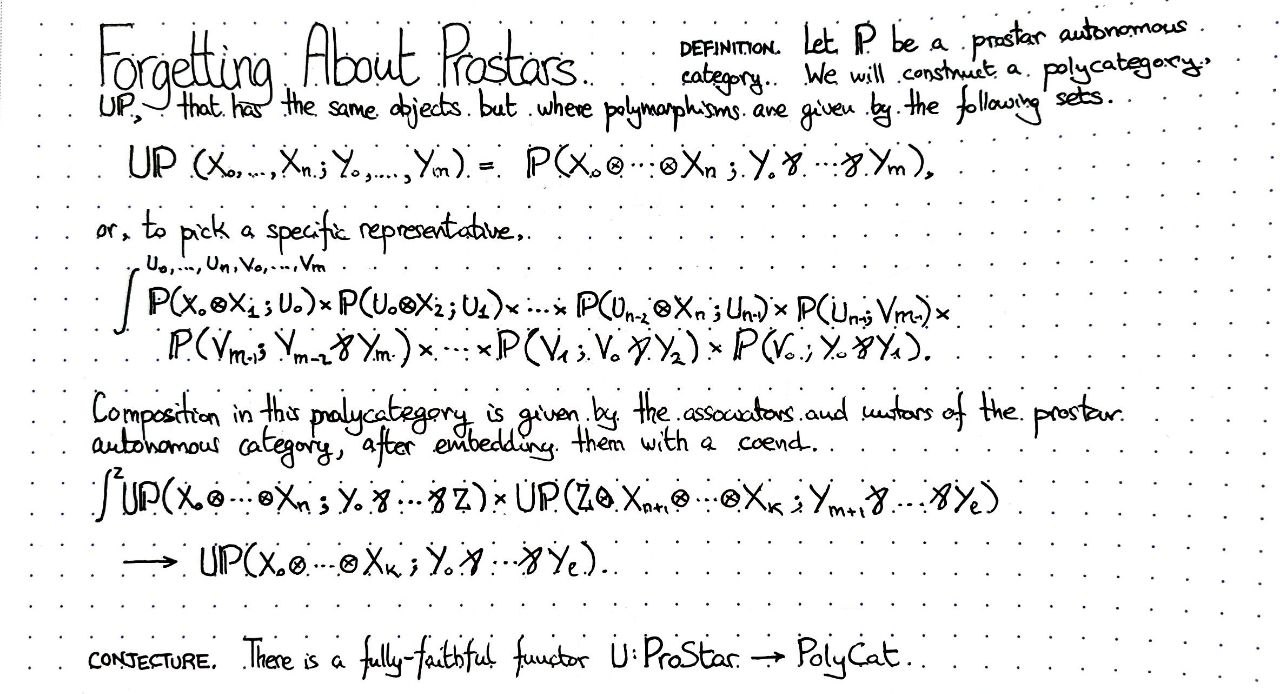 Forgetting About Prostars.
DEFINITION. Let ℙ be a prostar autonomous
category. We will construct a polycategory,
Uℙ, that has the same objects but where polymorphisms are given by the following sets.
Uℙ (X₀,...,Xₙ; Y₀,...,Yₘ) = ℙ(X₀⊗···⊗Xₙ; Y₀⅋···⅋Yₘ),
or, to pick a specific representative,
∫^{U₀,...,Uₙ,V₀,...,Vₘ}
ℙ(X₀⊗X₁; U₀) × ℙ(U₀⊗X₂; U₁) × ... × ℙ(Uₙ₋₂⊗Xₙ; Uₙ₋₁) × ℙ(Uₙ₋₁; Vₘ₋₁) ×
ℙ(Vₘ₋₁; Yₘ₋₂⅋Yₘ) × ··· × ℙ(V₁; V₀⅋Y₂) × ℙ(V₀; Y₀⅋Y₁).
Composition in this malycategory is given by the associators and unitors of the prostar
autonomous category, after embedding them with a coend.
∫^Z Uℙ(X₀⊗···⊗Xₙ; Y₀⅋···⅋Z) × Uℙ(Z⊗Xₙ₊₁⊗···⊗Xₖ; Yₘ₊₁⅋...⅋Yₑ)
⟶ Uℙ(X₀⊗···⊗Xₖ; Y₀⅋···⅋Yₑ).
CONJECTURE. There is a fully-faithful functor U: ProStar → PolyCat.